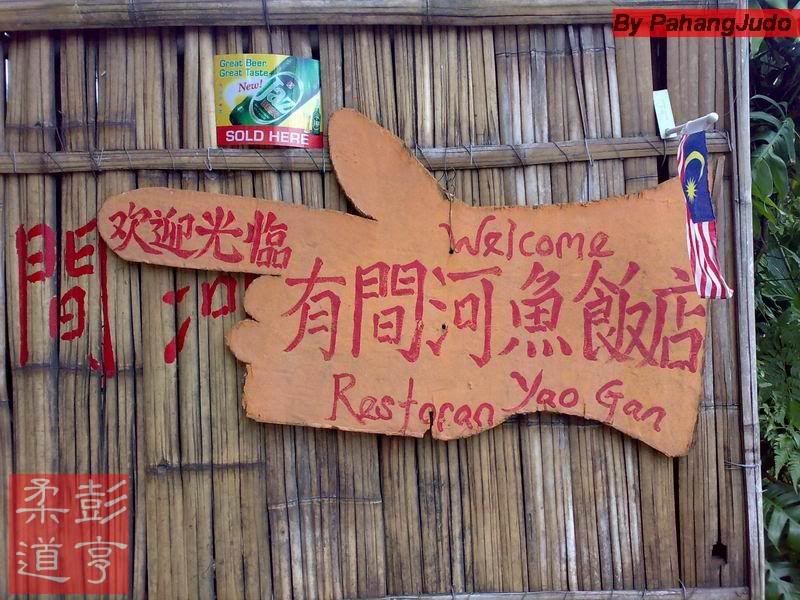 By PahangJudo
Great Beer
Great Taste
New!
SOLD HERE
欢迎光臨
Welcome
間河
有間河魚飯店
Restoran Yao Gan
彭亨
柔道